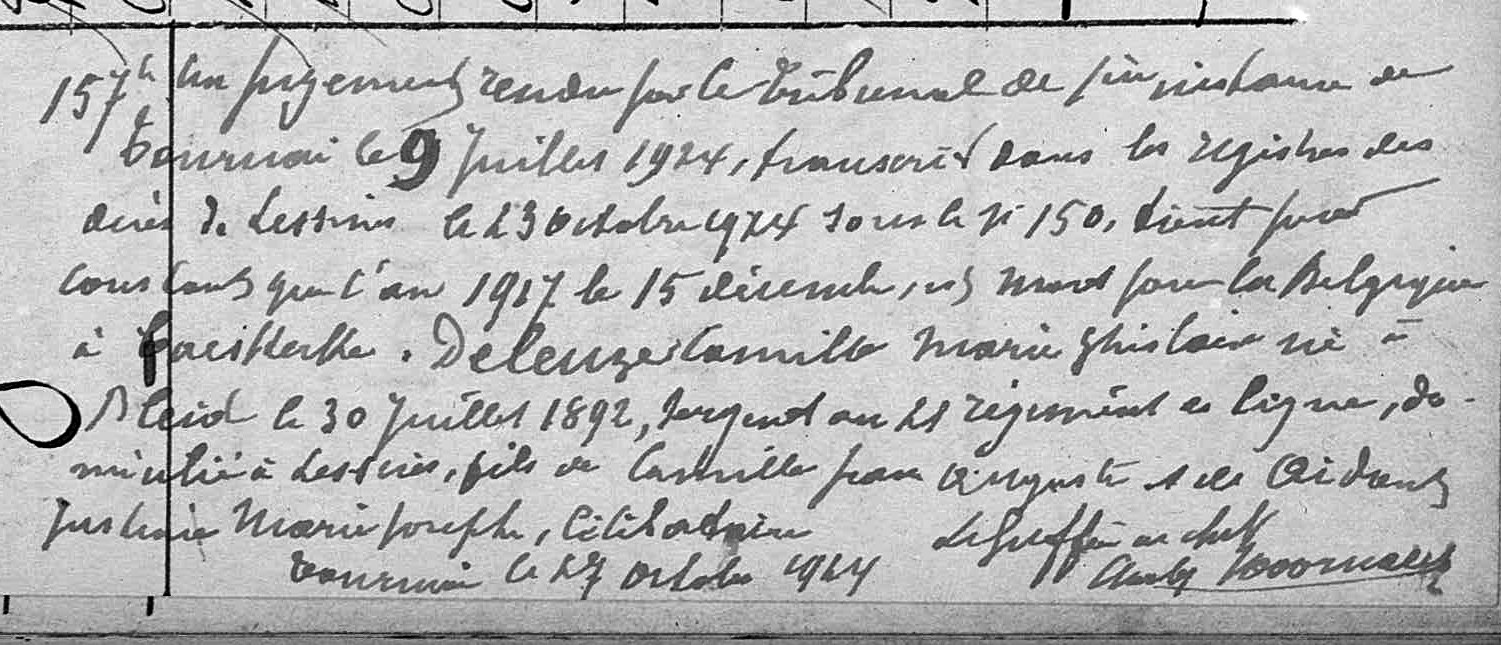 157 Un jugement rendu par le tribunal de 1ère instance de
Tournai le 9 Juillet 1924, transcrit dans les registres des
décès de Lessines le 23 Octobre 1924 sous le n° 150, tient pour
constant que l'an 1917 le 15 décembre, est mort pour la Belgique
à Caeskerke. Deleuze Camille Marie Ghislain né à
Bleid le 30 Juillet 1892, sergent au 21 régiment de ligne, do-
micilié à Lessines, fils de Camille Jean Auguste et de
Justinie Marie Joseph, Célibataire
Tournai le 27 octobre 1924
Le Greffier en chef